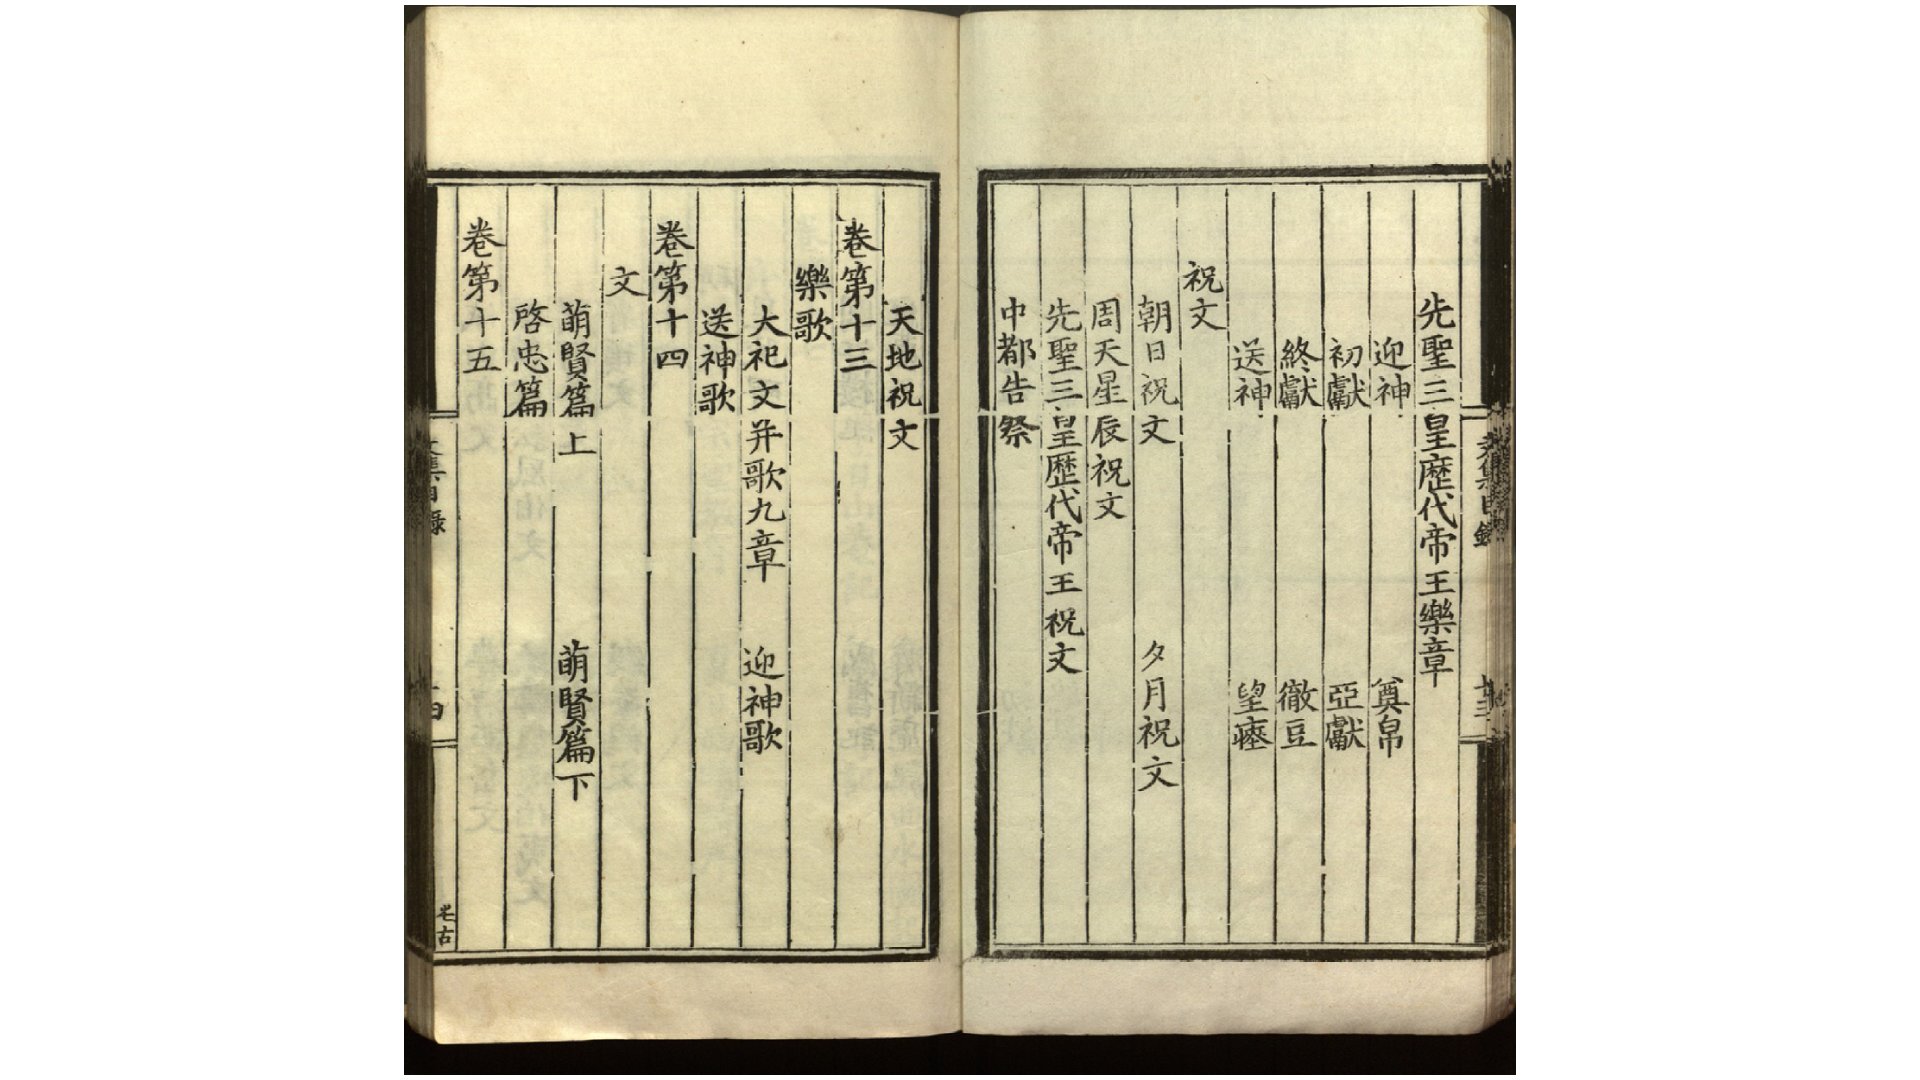 先聖三皇歷代帝王樂章
迎神 奠帛
初獻 亞獻
終獻 徹豆
送神 望瘞
祝文
朝日祝文 夕月祝文
周天星辰祝文
先聖三皇歷代帝王祝文
中都告祭
天地祝文
卷第十三
樂歌
大祀文并歌九章 迎神歌
送神歌
卷第十四
文
萌賢篇上 萌賢篇下
啓忠篇
卷第十五